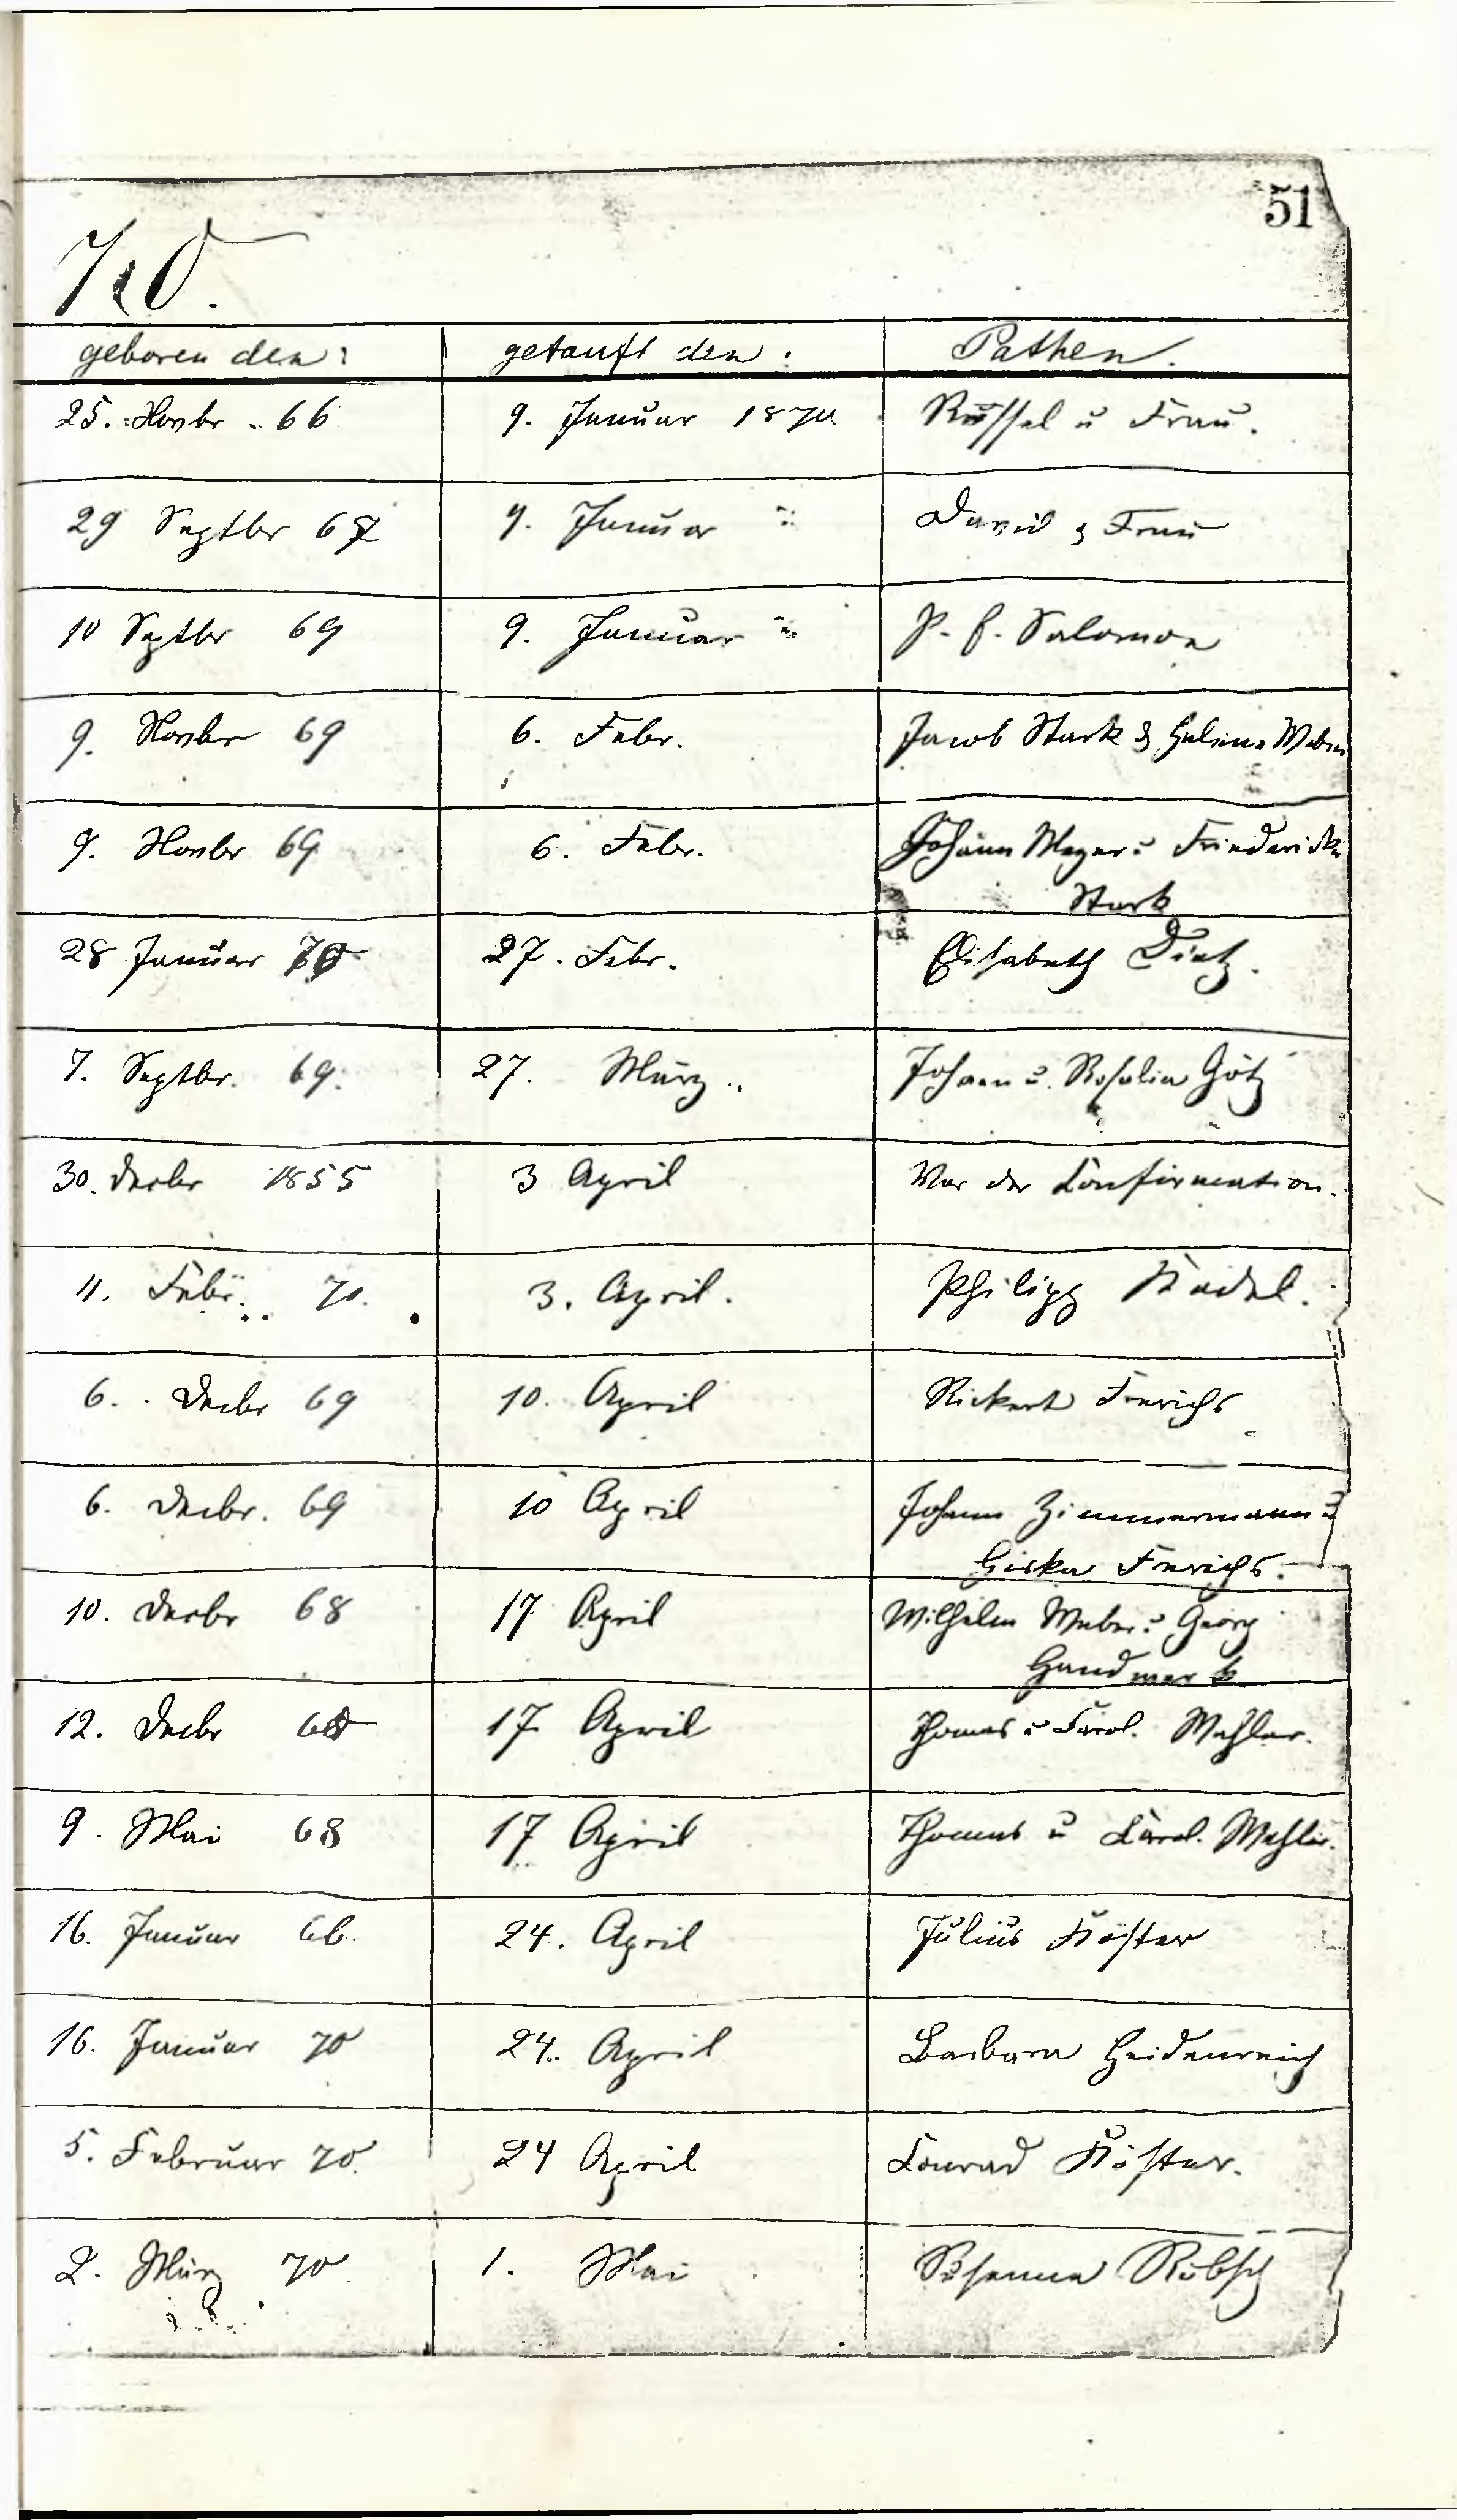 51
70.
geboren den: getauft den: Pathen.
25. Novbr. 66 9. Januar 1870. Rüssel u Frau.
29 Septbr 67 9. Januar " David & Frau
10 Septbr 69 9. Januar " P. f. Salomon
9. Novbr 69 6. Febr. Jacob Stark & Helena Weber
9. Novbr 69 6. Febr. Johann Meyer u Friedericke
Stark
28 Januar 70 27. Febr. Elisabeth Dietz.
7. Septbr. 69. 27. März Johann u. Rosalia Götz
30. Decbr 1855 3 April Vor der Confirmation.
11. Febr. 70. 3. April. Philipp Nadel.
6. Decbr 69 10. April Rickert Frerichs
6. Decbr. 69 10 April Johann Zimmermann u
Frerichs.
10. Decbr 68 17 April Wilhelm Weber u Georg
Handwerk
12. Decbr 17 April Thomas u Carol. Wehler.
9. Mai 68 17 April Thomas u Carol. Wehler.
16. Januar 66. 24. April Julius Köster
16. Januar 70 24. April Barbara Heidenreich
5. Februar 70. 24 April Conrad Köster.
2. März 70 1. Mai Rosanna